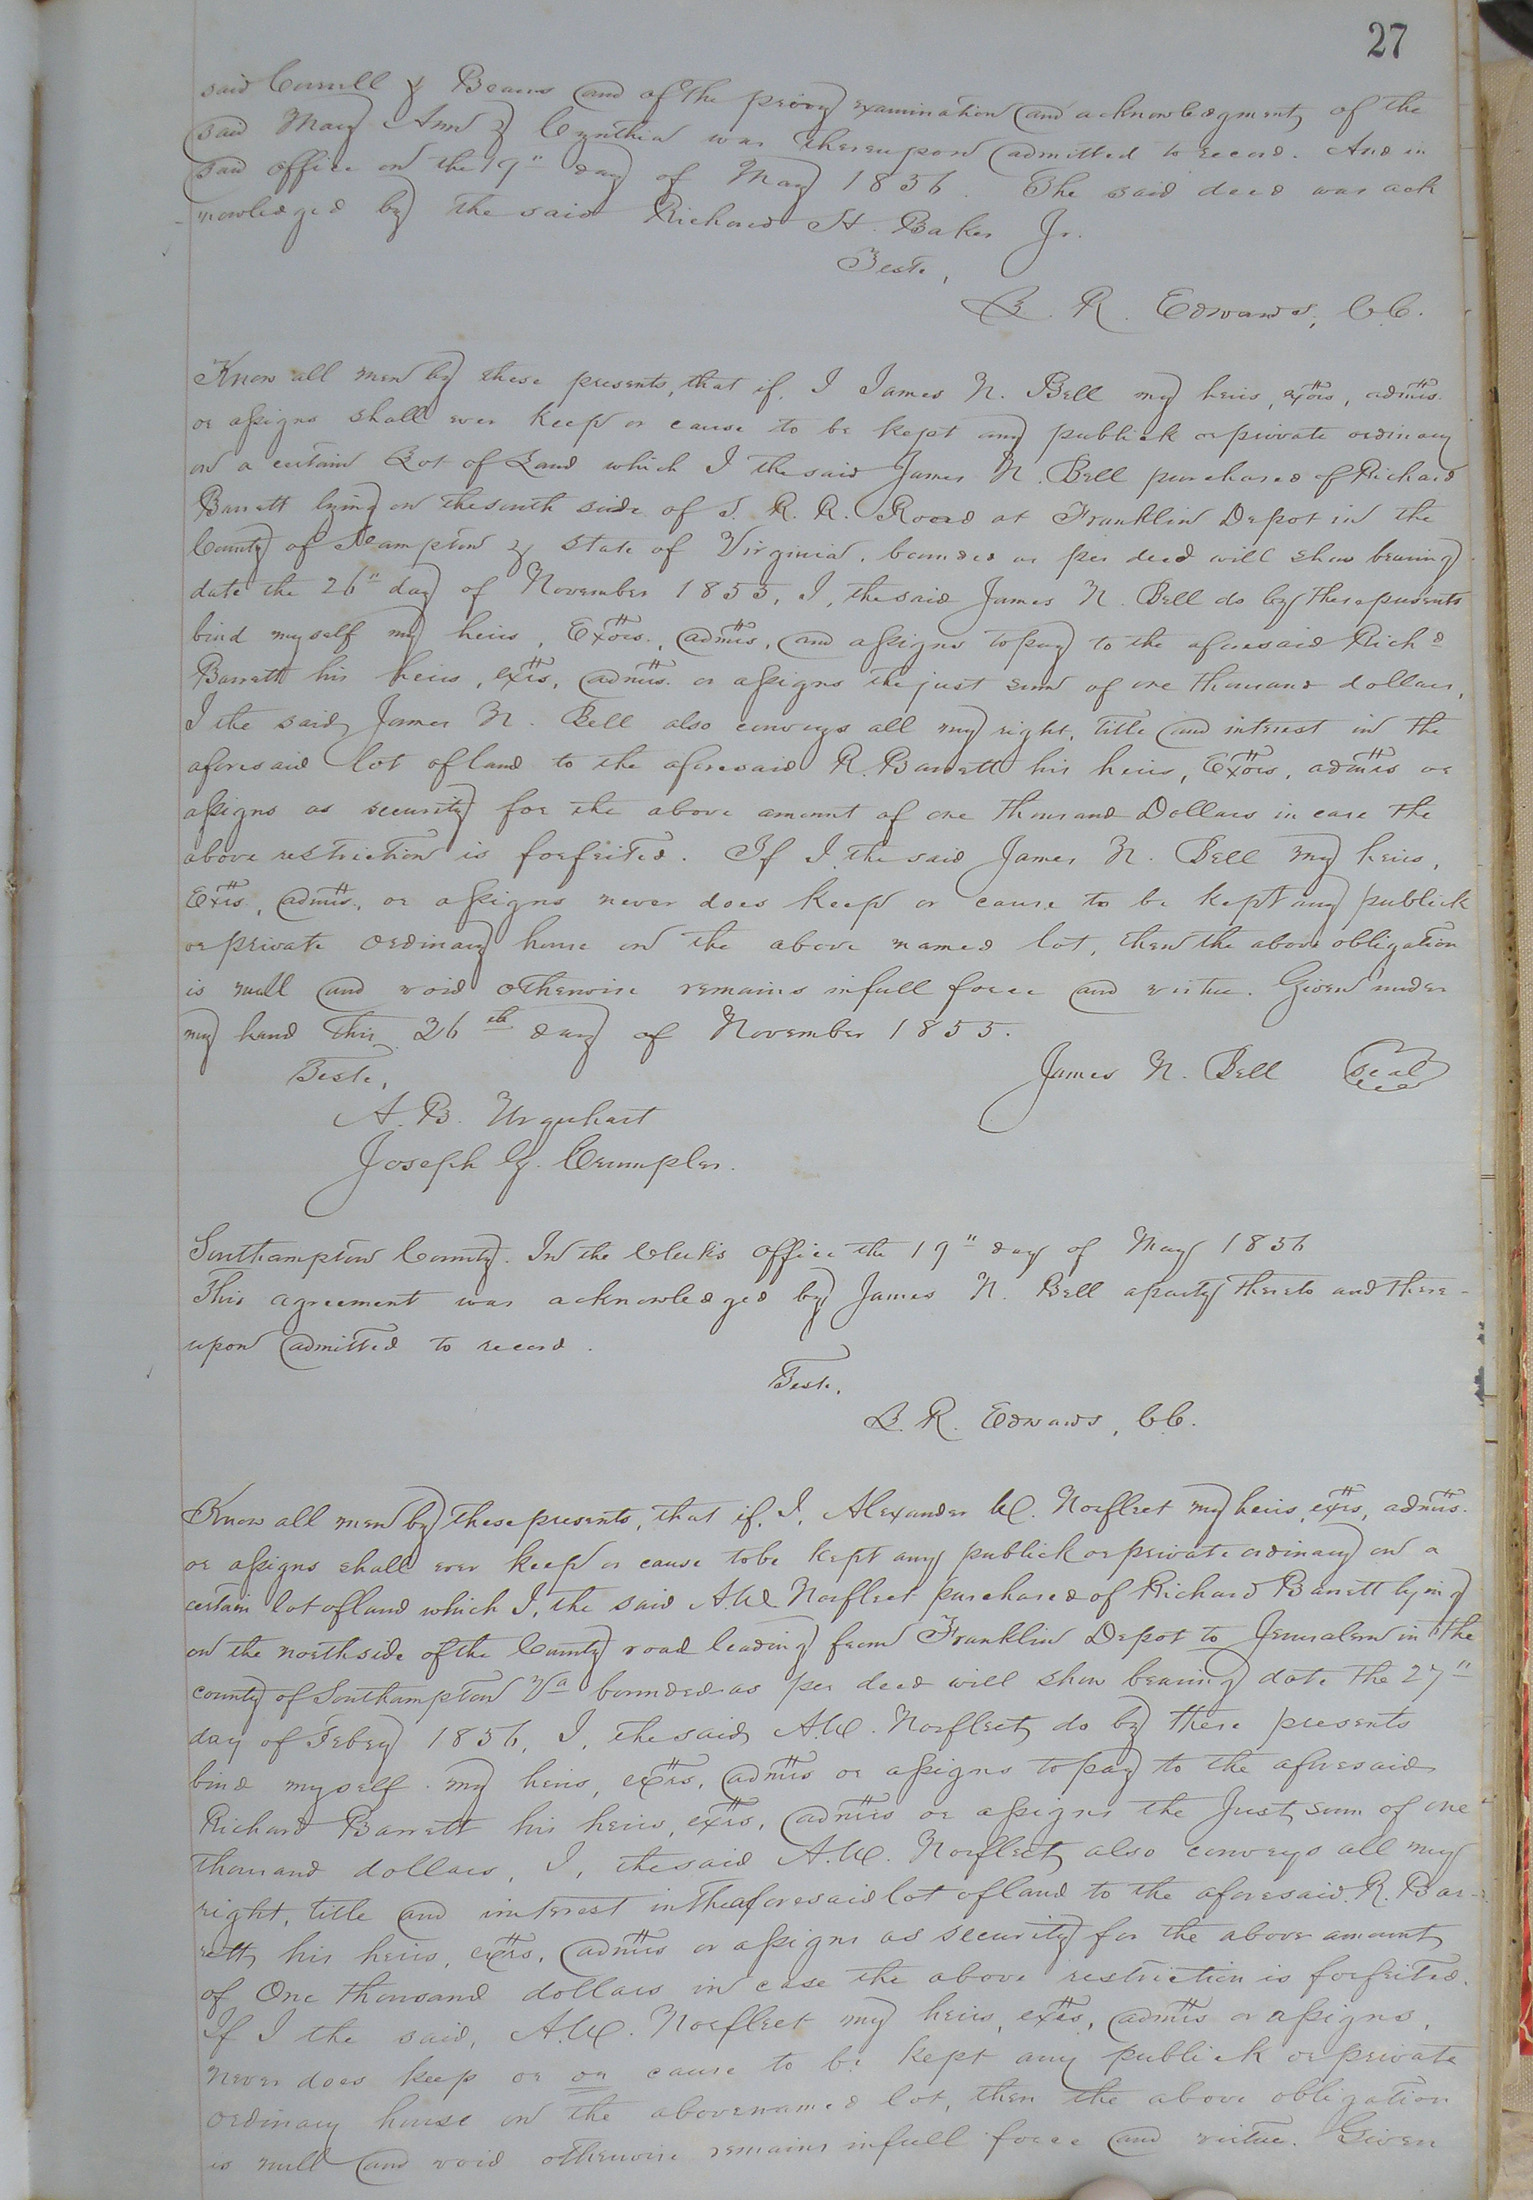 27
said Currell & Beams and of the privy examination and acknowledgment, of the
said Mary Ann & Cynthia was thereupon admitted to record. And in
said office on the 19" day of May 1856. The said deed was ack
nowledged by the said Richard H. Baker Jr.
Teste,
L. R. Edwards, C.C.
Know all men by these presents, that if, I James N. Bell my heirs, exors, admrs.
or assigns shall ever keep or cause to be kept any publick or private ordinary
on a certain Lot of Land which I the said James N. Bell purchased of Richard
Barrett lying on the south side of S. R. R. Road at Franklin Depot in the
County of Hampton & State of Virginia, bounded as per deed will show bearing
date the 26" day of November 1855, I, the said James N. Bell do by these presents
bind myself my heirs, Exors., admrs, and assigns to pay to the aforesaid Richd
Barrett his heirs, exrs, admrs. or assigns the just sum of one thousand dollars,
I the said, James N. Bell also conveys all my right, title and interest in the
aforesaid lot of land to the aforesaid R. Barrett his heirs, Exors, admrs or
assigns as security for the above amount of one thousand Dollars in case the
above restriction is forfeited. If I the said James N. Bell my heirs,
Exrs, admrs., or assigns never does keep or cause to be kept any publick
or private ordinary house on the above named lot, then the above obligation
is null and void otherwise remains in full force and virtue. Given under
my hand this 26th day of November 1855.
Teste, James N. Bell Seal
A. B. Urquhart
Joseph G. Crumpler.
Southampton County. In the Clerk's office the 19" day of May 1856
This agreement was acknowledged by James N. Bell a party thereto and there-
upon admitted to record.
Teste,
L. R. Edwards, C.C.
Know all men by these presents, that if, I, Alexander W. Norfleet my heirs, exrs, admrs.
or assigns shall ever keep or cause to be kept any publick or private ordinary on a
certain lot of land which I, the said A.W. Norfleet purchased of Richard Barrett lying
on the north side of the County road leading from Franklin Depot to Jerusalem in the
county of Southampton Va bounded as per deed will show bearing date the 27"
day of Febry 1856, I, the said, A.W. Norfleet, do by these presents
bind myself my heirs, exrs, admrs or assigns to pay to the aforesaid
Richard Barrett his heirs, exrs, admrs or assigns the Just, sum of one
thousand dollars, I, the said A.W. Norfleet, also conveys all my
right, title and interest in the aforesaid lot of land to the aforesaid R. Bar-
rett, his heirs, exrs, admrs or assigns as security for the above amount
of One thousand dollars in case the above restriction is forfeited.
If I the said, A.W. Norfleet my heirs, exrs, admrs or assigns,
never does keep or or cause to be kept any publick or private
ordinary house on the above named lot, then the above obligation
is null and void otherwise remains in full force and virtue. Given